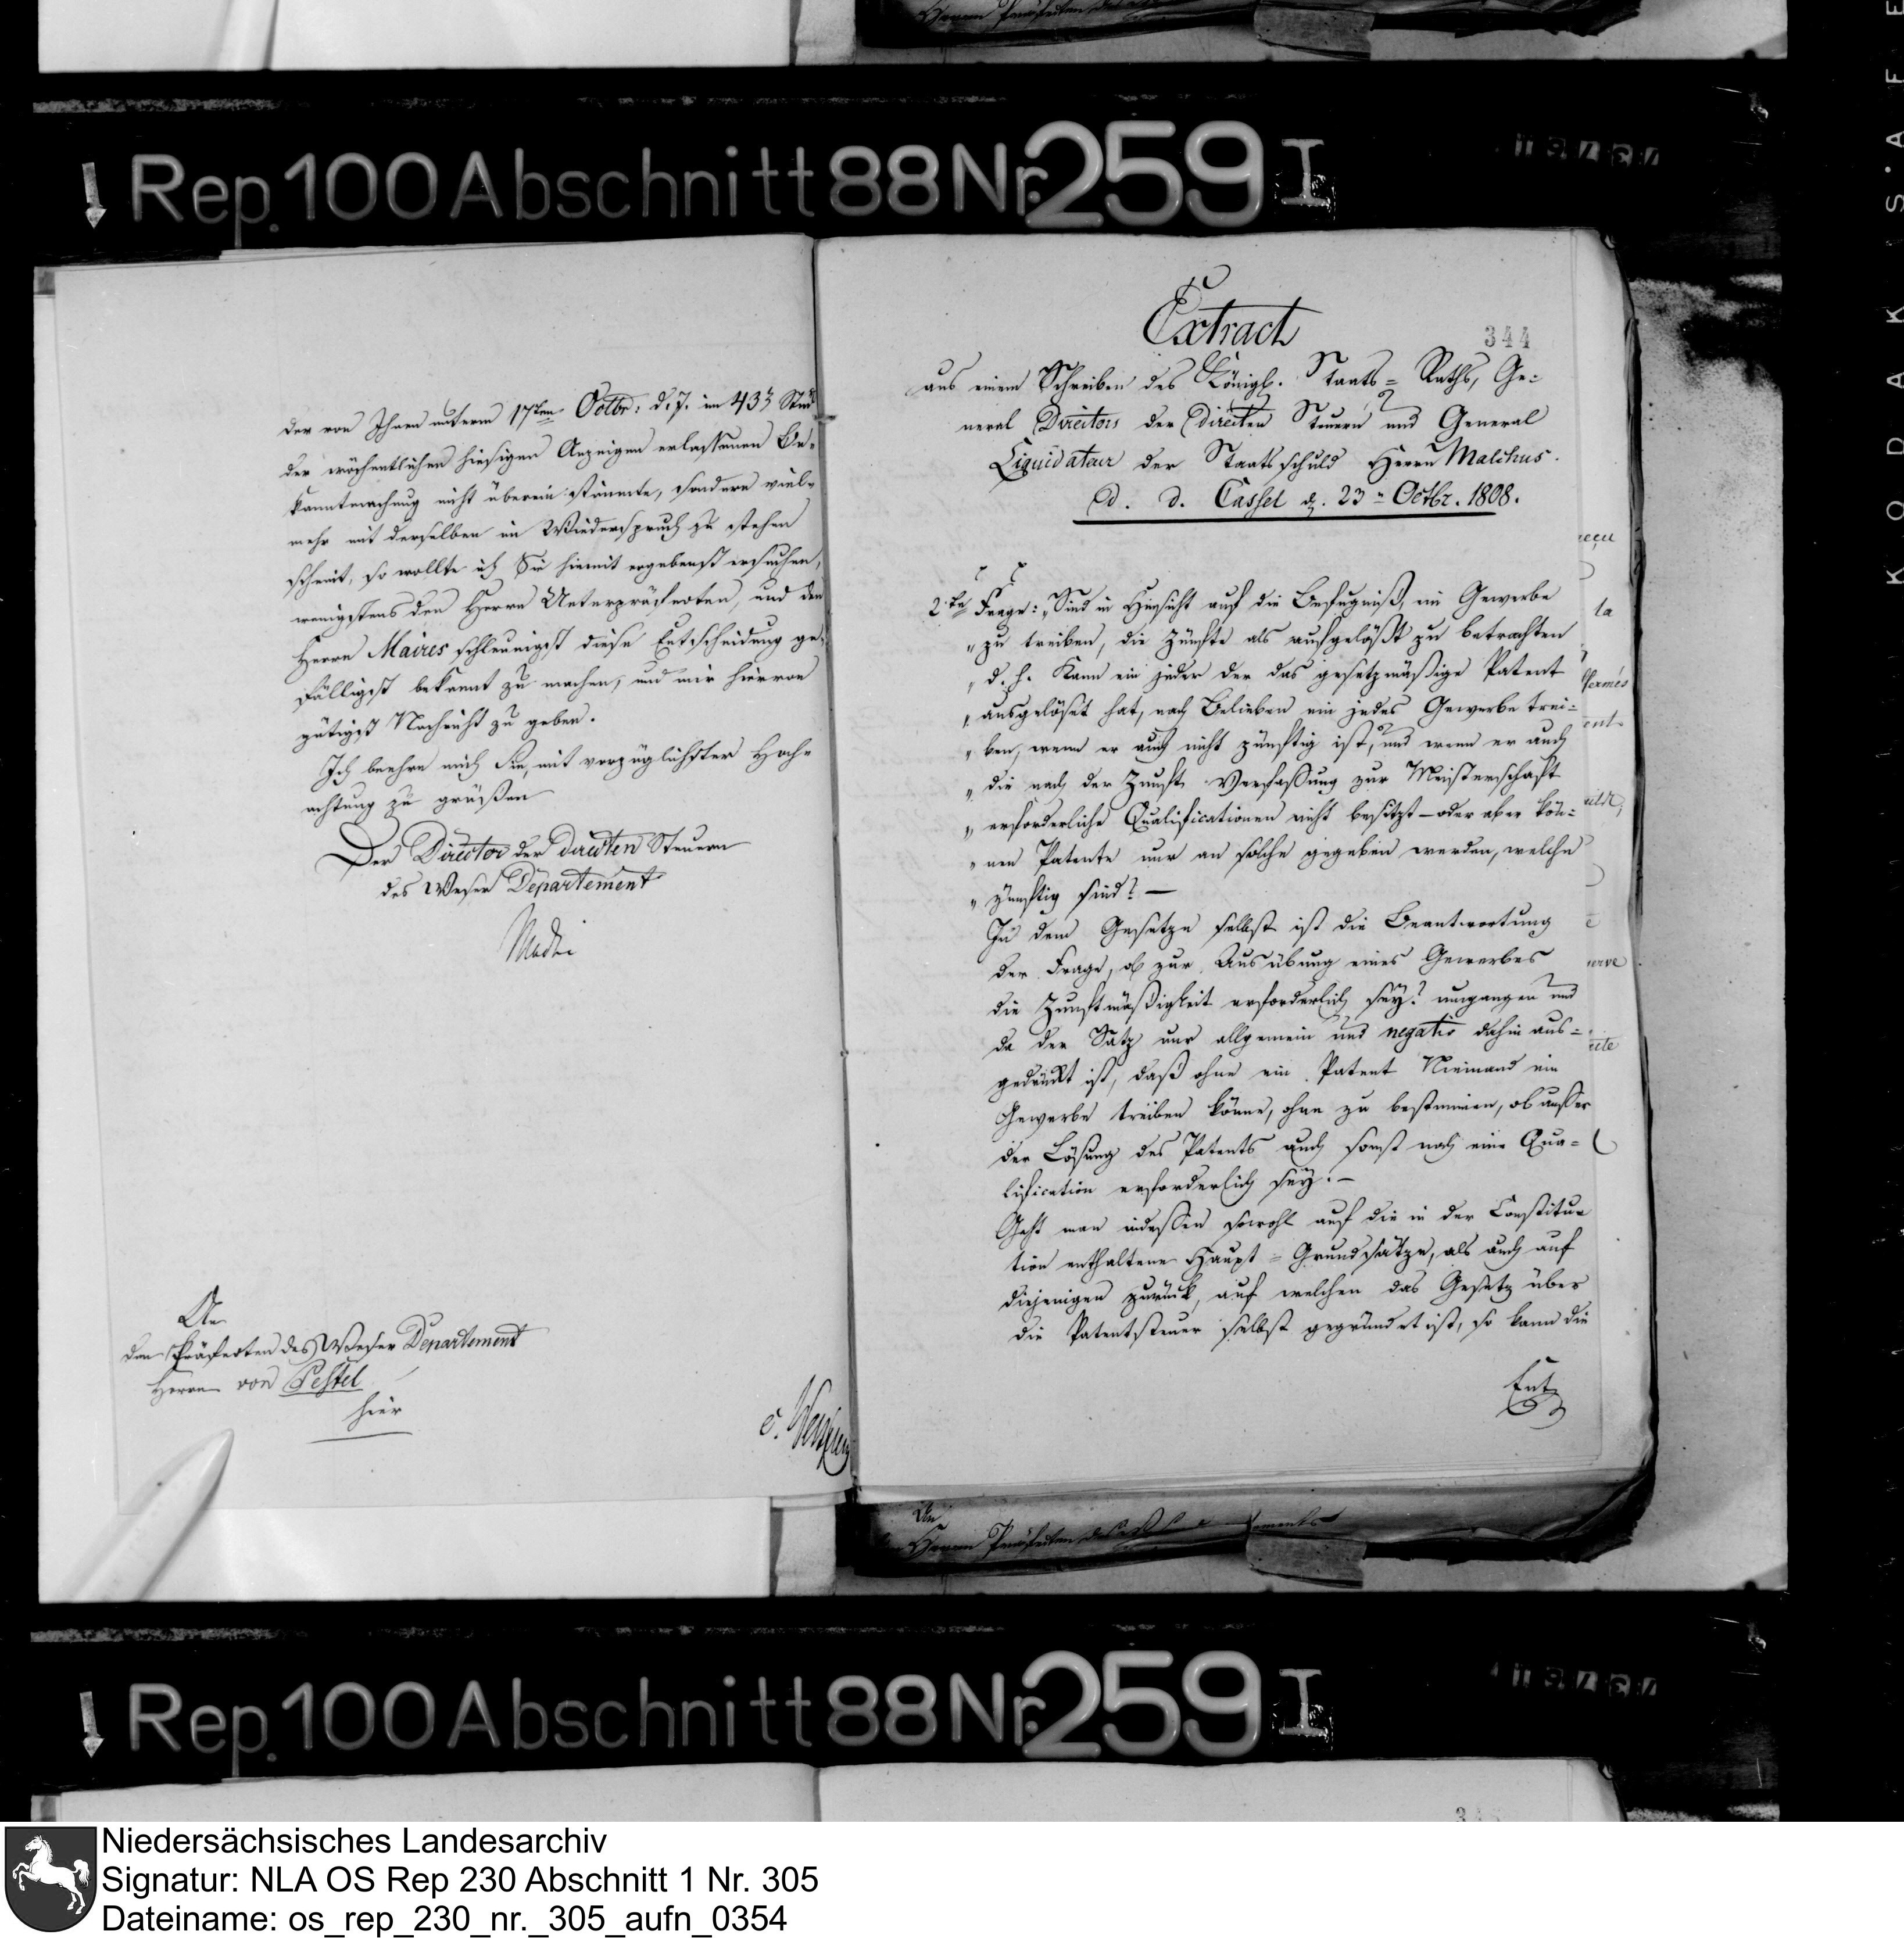 Rep. 100 Abschnitt 88 Nr. 259 I
der von Ihnen unterm 17ten Octbr: d. J. im 43t Stück
der wöchentlichen hiesigen Anzeigen erlassenen Be-
kanntmachung nicht überein stimmte, sondern viel-
mehr mit derselben im Wiederspruch zu stehen
scheint, so wollte ich Sie hiemit ergebenst ersuchen,
wenigstens den Herrn Unterpräfecten, und den
Herrn Maires schleunigst diese Entscheidung ge-
fälligst bekannt zu machen, und mir hiervon
gütigst Nachricht zu geben.
Ich beehre mich Sie, mit vorzüglichster Hoch-
achtung zu grüßen
Der Director der directen Steuern
des Weser Departement
An
den Präfecten des Weser Departement
Herrn von Pestel
hier
344
Extract
aus einem Schreiben des Königl. Staats- Raths, Ge-
neral Directors der directen Steuern und General
Liquidateur der Staatsschuld Herrn Malchus.
d. d. Cassel d. 23n Octbr. 1808.
2te Frage: „Sind in Hinsicht auf die Befugniß, ein Gewerbe
„ zu treiben, die Zünfte als aufgelößt zu betrachten
„ d. h. Kann ein jeder der das gesetzmäßige Patent
„ ausgelöset hat, nach Belieben ein jedes Gewerbe trei-
„ ben, wenn er auch nicht zünftig ist, und wenn er auch
„ die nach der Zunft Verfaßung zur Meisterschaft
„ erforderliche Qualificationen nicht besitzt – oder aber kön-
„ nen Patente nur an solche gegeben werden, welche
„ zünftig sind? —
In dem Gesetze selbst ist die Beantwortung
der Frage, ob zur Ausübung eines Gewerbes
die Zunftmäßigkeit erforderlich sey? umgangen und
da der Satz nur allgemein und negativ dahin aus-
gedrückt ist, daß ohne ein Patent Niemand ein
Gewerbe treiben könne, ohne zu bestimmen, ob außer
der Lösung des Patents auch sonst noch eine Qua-
lification erforderlich sey. –
Geht man indeßen sowohl auf die in der Constitu-
tion enthaltene Haupt - Grundsätze, als auch auf
diejenigen zurück, auf welchen das Gesetz über
die Patentsteuer selbst gegründet ist, so kann die
Ent
An
Herrn Präfecten des
Rep. 100 Abschnitt 88 Nr. 259 I
Niedersächsisches Landesarchiv
Signatur: NLA OS Rep 230 Abschnitt 1 Nr. 305
Dateiname: os_rep_230_nr._305_aufn_0354